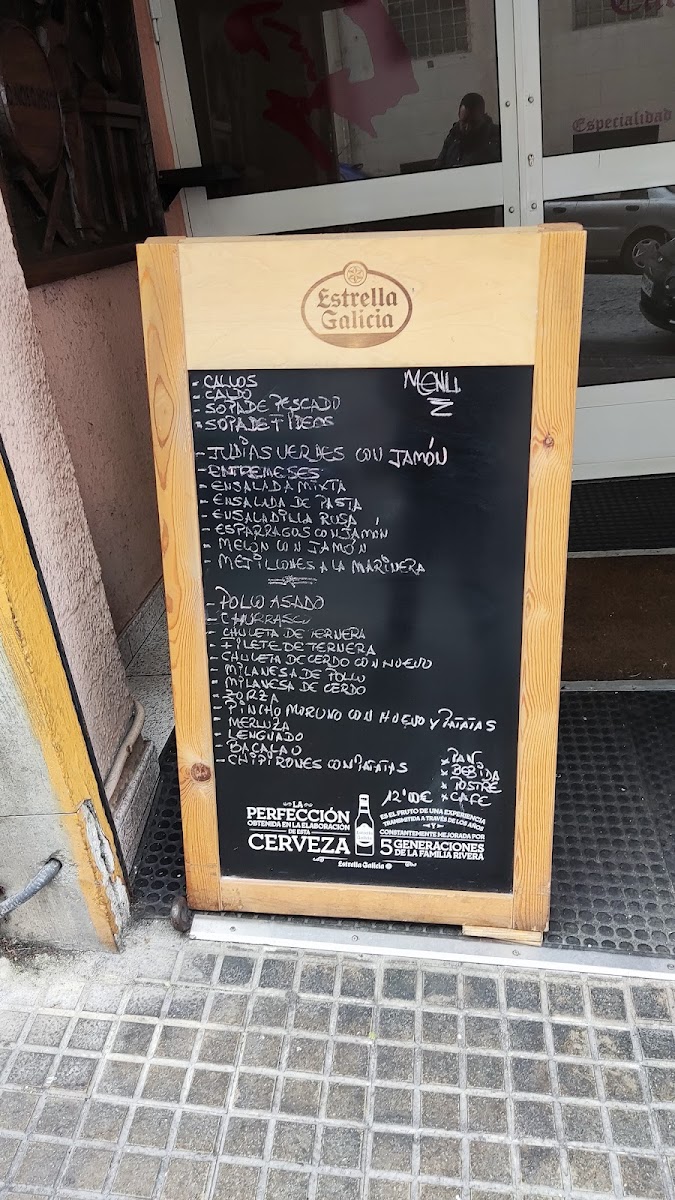 Especialidad
Estrella
Galicia
MENU
- CALLOS
- CALDO
- SOPA DE PESCADO
- SOPA DE FIDEOS
- JUDIAS VERDES CON JAMÓN
- ENTREMESES
- ENSALADA MIXTA
- ENSALADA DE PASTA
- ENSALADILLA RUSA
- ESPARRAGOS CON JAMÓN
- MELON CON JAMÓN
- MEJILLONES A LA MARINERA
- POLLO ASADO
- CHURRASCO
- CHULETA DE TERNERA
- FILETE DE TERNERA
- CHULETA DE CERDO CON HUEVO
- MILANESA DE POLLO
- MILANESA DE CERDO
- ZORZA
- PINCHO MORUNO CON HUEVO Y PATATAS
- MERLUZA
- LENGUADO
- BACALAO
- CHIPIRONES CON PATATAS
* PAN
* BEBIDA
* POSTRE
* CAFE
12'00€
LA
PERFECCIÓN
OBTENIDA EN LA ELABORACIÓN
DE ESTA
CERVEZA
ES EL FRUTO DE UNA EXPERIENCIA
TRANSMITIDA A TRAVÉS DE LOS AÑOS
Y
CONSTANTEMENTE MEJORADA POR
5 GENERACIONES
DE LA FAMILIA RIVERA
Estrella Galicia